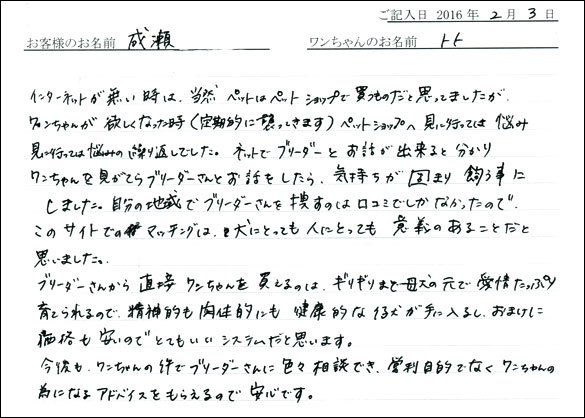 ご記入日 2016 年 2 月 3 日
お客様のお名前 成瀬 ワンちゃんのお名前 トト
インターネットが無い時は、当然 ペットはペットショップで買うものだと思ってましたが、
ワンちゃんが欲しくなった時(定期的に襲ってきます)ペットショップへ見に行っては悩み
見に行っては悩みの繰り返しでした。ネットでブリーダーとお話が出来ると分かり
ワンちゃんを見がてらブリーダーさんとお話をしたら、気持ちが固まり飼う事に
しました。自分の地域でブリーダーさんを捜すのは口コミでしかなかったので、
このサイトでのマッチングは、犬にとっても人にとっても意義のあることだと
思いました。
ブリーダーさんから直接ワンちゃんを買えるのは、ギリギリまで母犬の元で愛情たっぷり
育てられるので、精神的も肉体的にも健康的な仔犬が手に入るし、おまけに
価格も安いのでとてもいいシステムだと思います。
今後も、ワンちゃんの件でブリーダーさんに色々相談でき、営利目的でなくワンちゃんの
為になるアドバイスをもらえるので安心です。